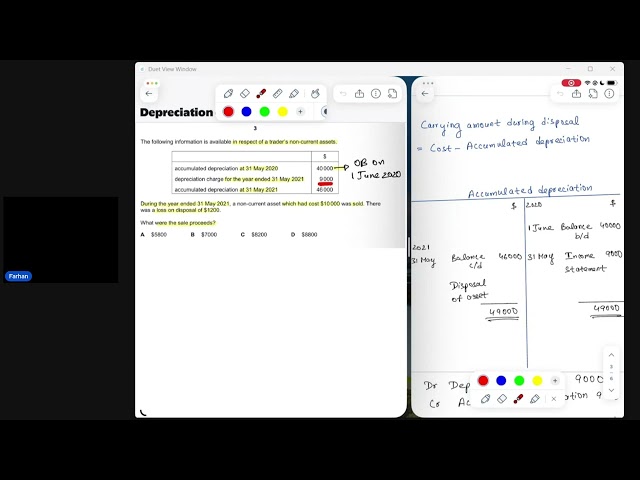 Duet View Window
Depreciation
3
The following information is available in respect of a trader's non-current assets.
$
accumulated depreciation at 31 May 2020 40 000
depreciation charge for the year ended 31 May 2021 9 000
accumulated depreciation at 31 May 2021 46 000
OB on
1 June 2020
During the year ended 31 May 2021, a non-current asset which had cost $10 000 was sold. There
was a loss on disposal of $1200.
What were the sale proceeds?
A $5800 B $7000 C $8200 D $8800
Farhan
Carrying amount during disposal
= Cost - Accumulated depreciation
Accumulated depreciation
$ 2020 $
1 June Balance 40000
b/d
2021
31 May Balance 46000 31 May Income 9000
c/d Statement
Disposal
of asset
49000 49000
3
6
Dr Dep 9000
Cr Ac ation 9